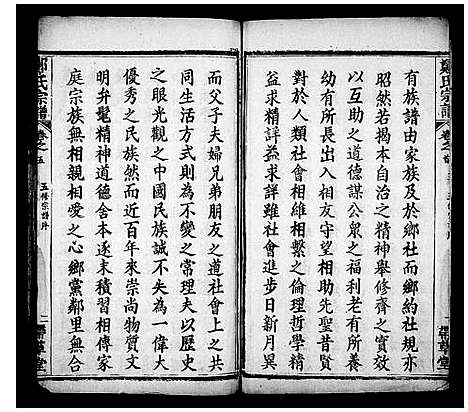 鄭氏宗譜
有族譜由家族及於鄉社而鄉約社規亦
昭然若揭本自治之精神舉修齊之成績
以互助之道德謀公衆之福利老有所養
幼有所長出入相友守望相助先聖昔賢
對於人類社會相維相繫之倫理哲學精
益求精詳益求詳雖社會進步日新月異
而父子夫婦兄弟朋友之道社會上之共
同生活方式則為不變之常理夫以歷史
之眼光觀之中國民族誠不失為一偉大
優秀之民族然而近百年來崇尚物質文
明弁髦精神道德舍本逐末積習相傳家
庭宗族無相親相愛之心鄉黨鄰里無合
鄭氏宗譜
卷之五
五修宗譜序
二
帶草堂